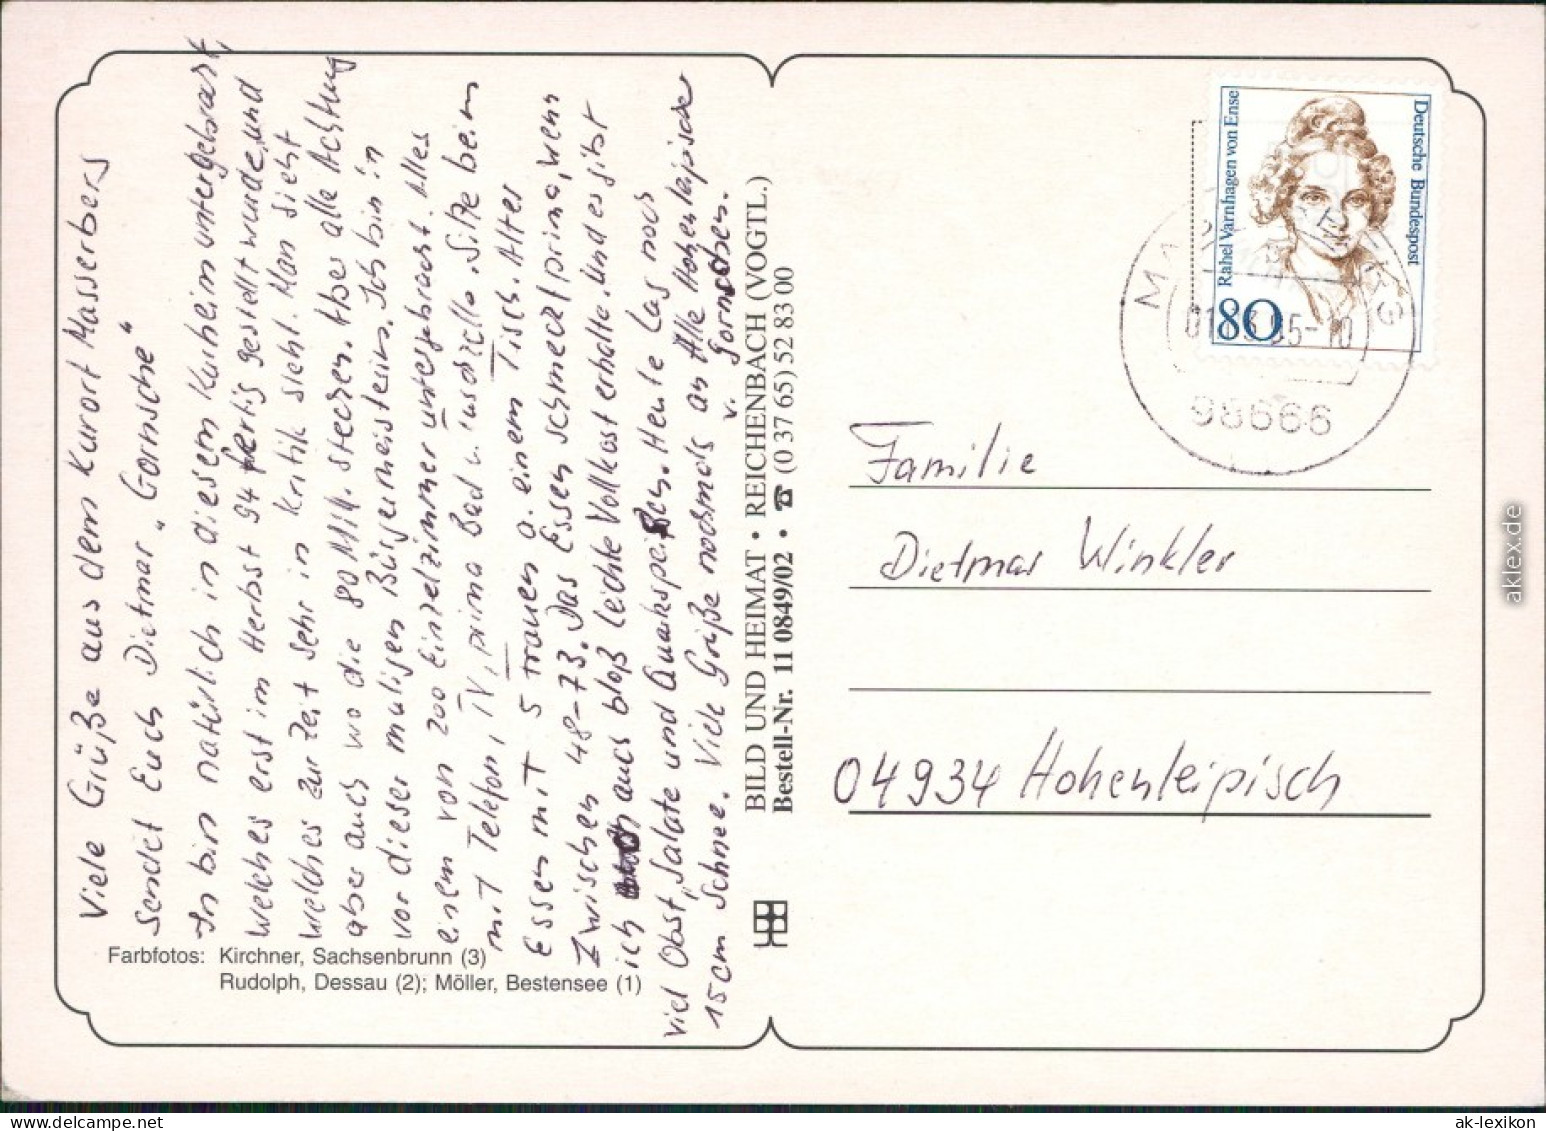 Viele Grüße aus dem Kurort Masserberg
sendet Euch Dietmar „Gornsche“
In bin natürlich in diesem Kurheim untergebracht,
welches erst im Herbst 94 fertig gestellt wurde und
welches zur Zeit sehr in Kritik steht. Man sieht
aber auch wo die 80 Mill. stecken. Aber alle Achtung
vor dieser mutigen Bürgermeisterin. Ich bin in
einem von 200 Einzelzimmer untergebracht. Alles
mit Telefon, TV, prima Bad u. Dusche. Sitze beim
Essen mit 5 Frauen a. einem Tisch. Alter
zwischen 48-73. Das Essen schmeckt prima, wenn
ich auch bloß leichte Vollkost erhalte. Und es gibt
viel Obst, Salate und Quarkspeisen. Heute lag noch
15cm Schnee. Viele Grüße nochmals an Alle Hohenleipischer
v. Gornschen.
Farbfotos: Kirchner, Sachsenbrunn (3)
Rudolph, Dessau (2); Möller, Bestensee (1)
BILD UND HEIMAT • REICHENBACH (VOGTL.)
Bestell-Nr. 11 0849/02 • ☎ (0 37 65) 52 83 00
Rahel Varnhagen von Ense
Deutsche Bundespost
80
98666
Familie
Dietmar Winkler
04934 Hohenleipisch
aklex.de
www.ansichtskarten-lexikon.de
ak-lexikon